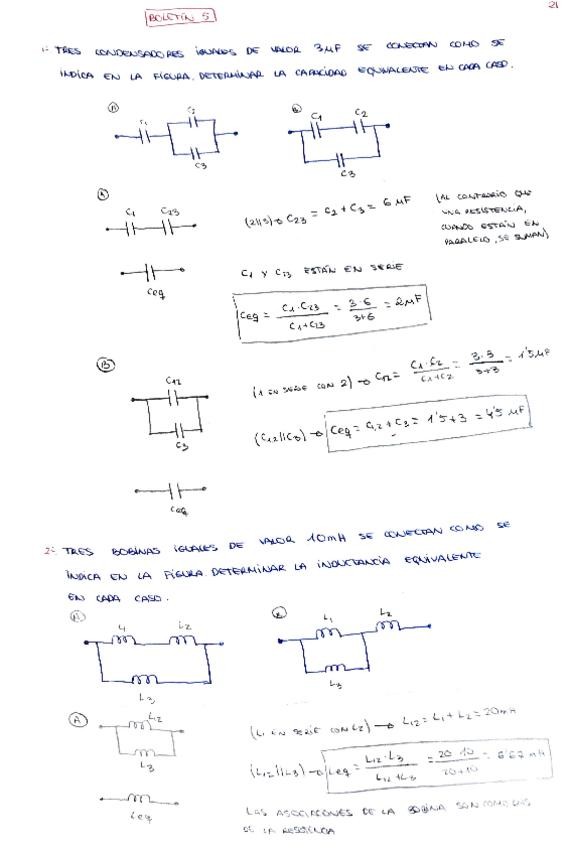 21
BOLETÍN 5
1º TRES CONDENSADORES IGUALES DE VALOR 3μF SE CONECTAN COMO SE
INDICA EN LA FIGURA. DETERMINAR LA CAPACIDAD EQUIVALENTE EN CADA CASO.
C1 C2 C3
C1 C2 C3
A
C1 C23
(2||3) → C23 = C2 + C3 = 6 μF
(AL CONTRARIO QUE
UNA RESISTENCIA,
CUANDO ESTÁN EN
PARALELO, SE SUMAN)
Ceq
C1 Y C23 ESTÁN EN SERIE
Ceq = C1·C23 / C1+C23 = 3·6 / 3+6 = 2μF
B
C12
C3
(1 EN SERIE CON 2) → C12 = C1·C2 / C1+C2 = 3·3 / 3+3 = 1'5μF
(C12||C3) → Ceq = C12 + C3 = 1'5 + 3 = 4'5 μF
Ceq
2º TRES BOBINAS IGUALES DE VALOR 10mH SE CONECTAN COMO SE
INDICA EN LA FIGURA. DETERMINAR LA INDUCTANCIA EQUIVALENTE
EN CADA CASO.
L1 L2
L3
L1 L2
L3
A
L12
L3
(L1 EN SERIE CON L2) → L12 = L1 + L2 = 20mH
(L12||L3) → Leq = L12·L3 / L12+L3 = 20·10 / 20+10 = 6'67 mH
Leq
LAS ASOCIACIONES DE LA BOBINA SON COMO LAS
DE LA RESISTENCIA